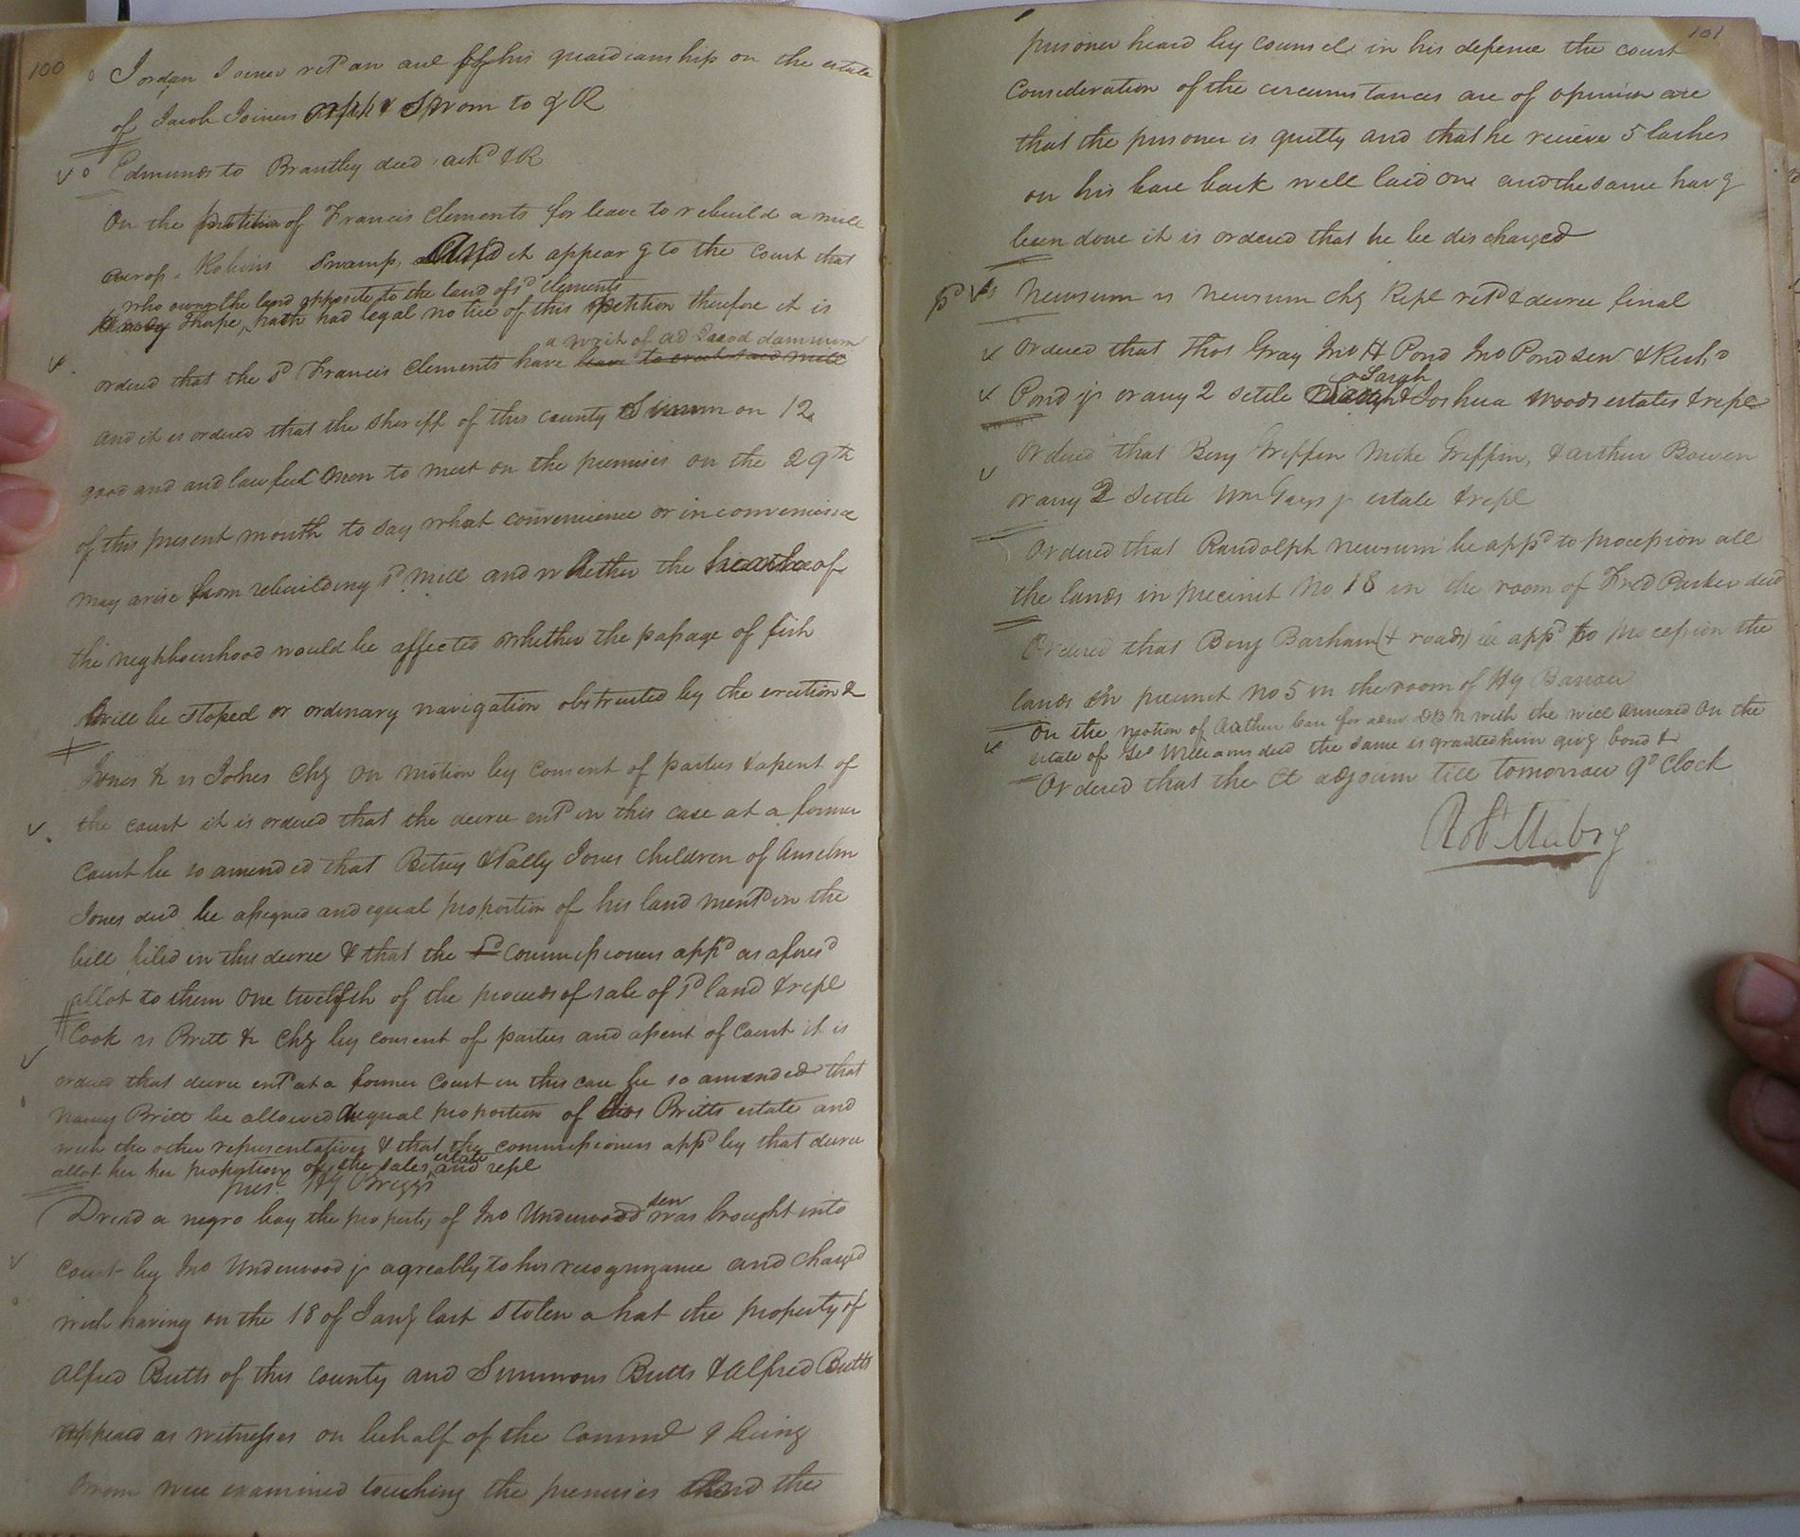 100
Jordan Joiner retd an acct of his guardianship on the estate
of Jacob Joiners orph & Sworn to & R
Edmunds to Brantley deed ackd & R
On the petition of Francis Clements for leave to rebuild a mill
across Robins Swamp, And it appearg to the Court that
who owns the land opposite to the land of sd Clements
Tharpe, hath had legal notice of this petition therefore it is
a writ of ad Quod damnum
ordered that the sd Francis Clements have leave to erect said mill
and it is ordered that the sheriff of this county Summon 12
good and and lawful men to meet on the premises on the 29th
of this present month to say what convenience or inconvenience
may arise from rebuilding sd mill and whether the health of
the neghbourhood would be affected whether the passage of fish
will be stoped or ordinary navigation obstructed by the erection &
Jones &c vs Jones Chy On motion by consent of parties & assent of
the court it is ordered that the decree entd in this case at a former
Court be so amended that Betsey & Sally Jones children of Anselm
Jones decd be assigned and equal proportion of his land mentd in the
bill filed in this decree & that the sd Commissioners appd as aforesd
allot to them One twelfth of the proceeds of sale of sd land & repl
Cook vs Britt &c Chy by consent of parties and assent of Court it is
ordered that decree entd at a former Court in this case be so amended that
Nancy Britt be allowed an equal proportion of Britts estate and
with the other representatives & that the commissioners appd by that decree
allot her her proportion of the sales estate and repl
pres. Hy Briggs
Dred a negro boy the property of Jno Underwood sen was brought into
Court by Jno Underwood jr agreably to his recognizance and charged
with having on the 18 of Jany last stolen a hat the property of
Alfred Butts of this county and Simmons Butts & Alfred Butts
appeard as witnesses on behalf of the Commd & being
sworn were examined touching the premises and the
101
prisoner heard by counsel in his defence the court
Consideration of the circumstances are of opinion are
that the prisoner is guilty and that he recieve 5 lashes
on his bare back well laid one and the same havg
been done it is ordered that he be discharged
Newsum vs Newsum Chy Repl retd & decree final
Ordered that Thos Gray Jno H Pond Jno Pond sen & Richd
Pond jr or any 2 settle Sarah & Joshua Woods estates & repl
Ordered that Benj Griffin Mike Griffin, & Arthur Bowen
or any 2 settle Wm Grays jr estate & repl
Ordered that Randolph Newsum be appd to procession all
the lands in precinct No 18 in the room of Fred Parker decd
Ordered that Benj Barham (+ roads) be appd to procession the
lands in precinct No 5 in the room of Hy
On the motion of Arthur for adm DBN with the will annexed on the
estate of Williams decd the same is granted him givg bond &
Ordered that the Ct adjourn till tomorrow 9 o Clock
Robt Mabry